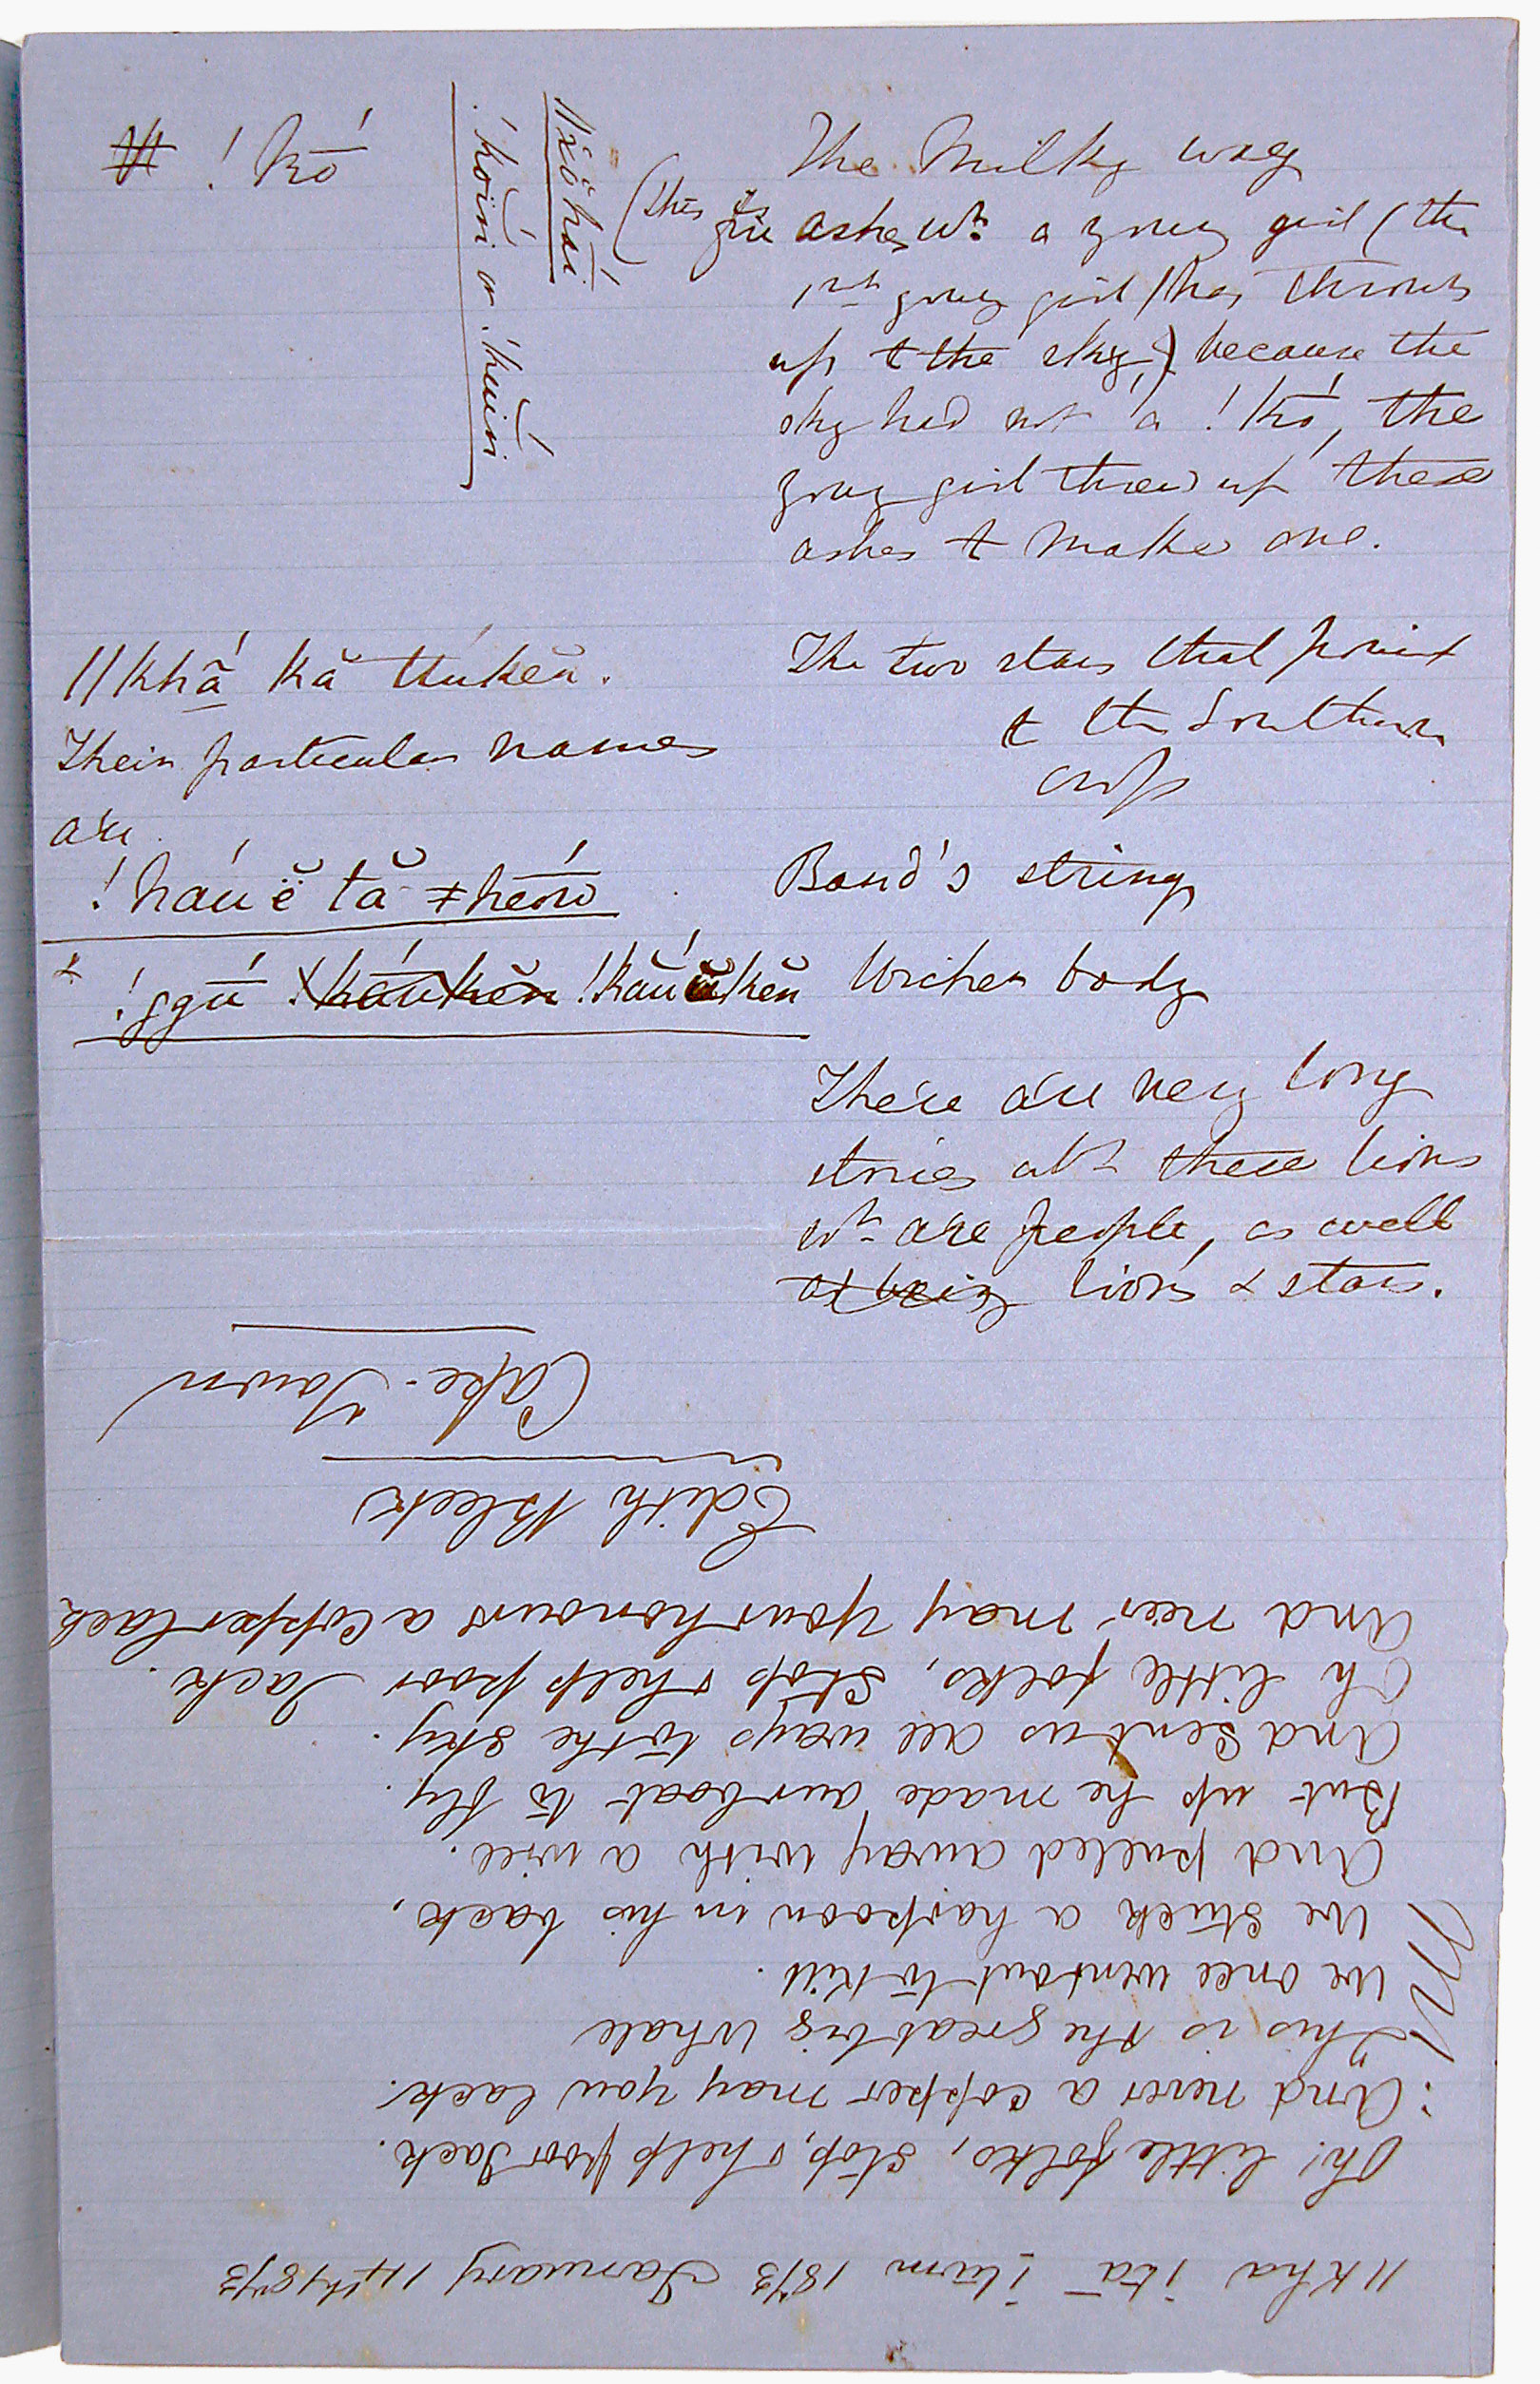 ! kṓ
ǁxŏ́hāi
!kŏiń or !kŭiń
The Milky way
(this is
fire ashes wh. a young girl (the
1st young girl) has thrown
up to the sky) because the
sky had not a !kṓ, the
young girl threw up these
ashes to make one.
ǁkhā́ kă tŭ́kĕn.
Their particular names
are
!háu ĕ tă ǂhérro
x !ggū́ !káukĕn !kắŭkĕn
The two stars that point
to the Southern
cross
Band's strings
Writhes body
There are very long
stories abt these lions
wh are people, as well
as being lions & stars.
Cape-Town
Edith Bleek
ǁkha ítā ítum 1873 January 14th 1873
Oh! little folks, stop, & help poor Jack.
And never a copper may you lack.
This is the great big whale
We once went out to kill.
We stuck a harpoon in his back,
And pulled away with a will.
But up he made our boat to fly.
And sent us all ways to the sky.
Oh little folks, stop & help poor Jack.
And neer may your honours a copper lack